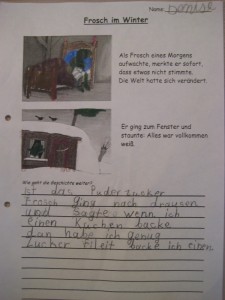 Name: Denise
Frosch im Winter
Als Frosch eines Morgens
aufwachte, merkte er sofort,
dass etwas nicht stimmte.
Die Welt hatte sich verändert.
Er ging zum Fenster und
staunte: Alles war vollkommen
weiß.
Wie geht die Geschichte weiter?
ist das Puderzucker
Frosch ging nach drausen
und Sagte wenn ich
einen Kuchen backe
dan habe ich genug
zucker backe ich einen